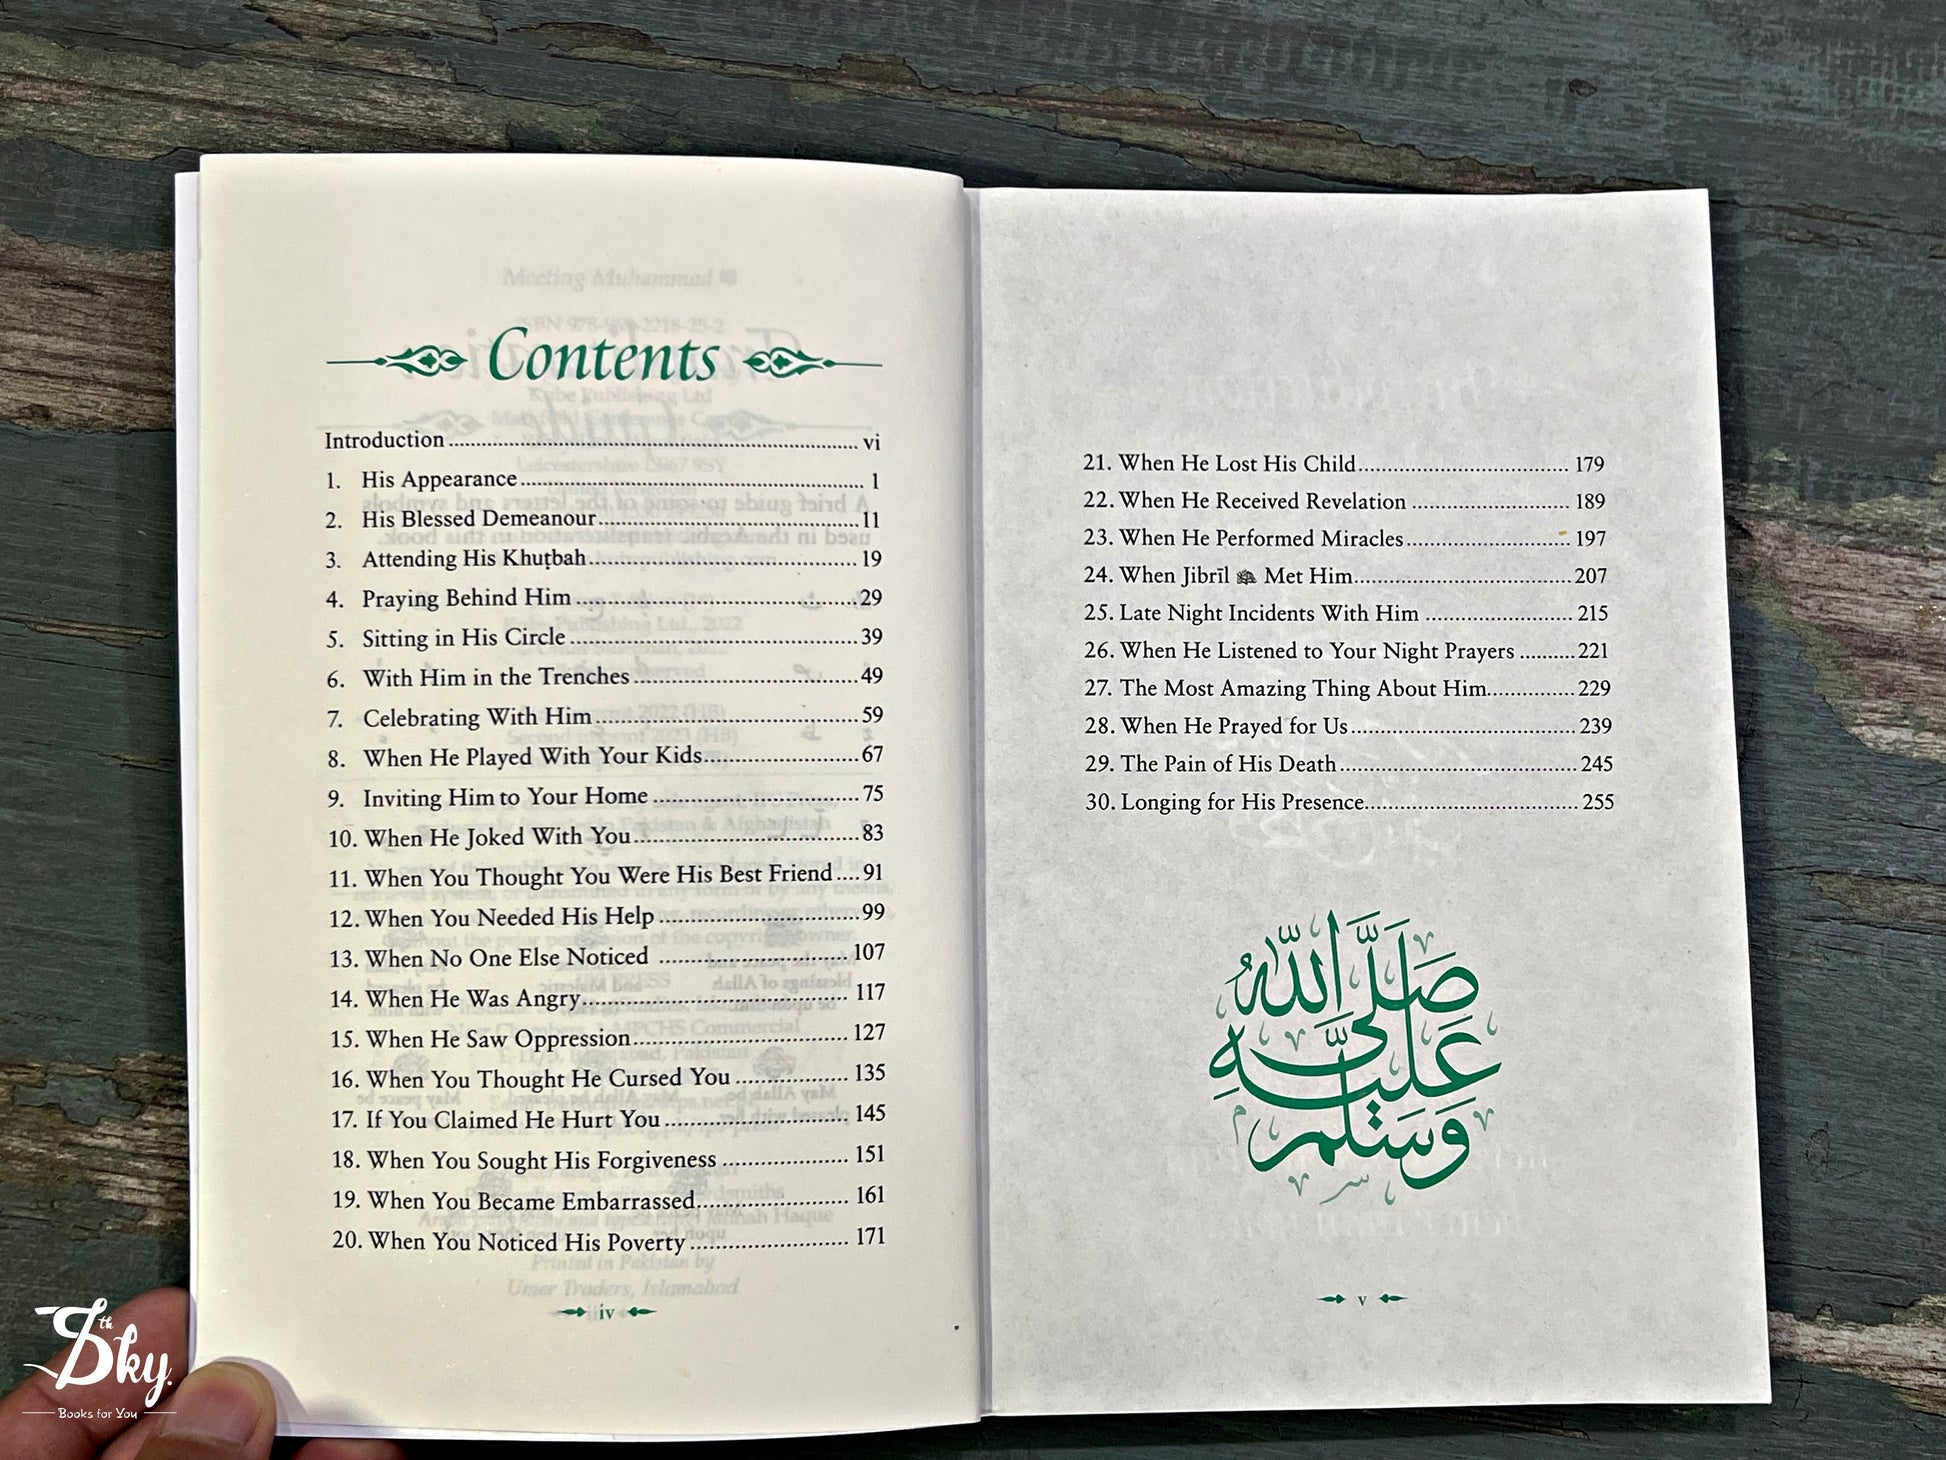 Contents
Introduction .......... vi
1. His Appearance .......... 1
2. His Blessed Demeanour .......... 11
3. Attending His Khuṭbah .......... 19
4. Praying Behind Him .......... 29
5. Sitting in His Circle .......... 39
6. With Him in the Trenches .......... 49
7. Celebrating With Him .......... 59
8. When He Played With Your Kids .......... 67
9. Inviting Him to Your Home .......... 75
10. When He Joked With You .......... 83
11. When You Thought You Were His Best Friend .... 91
12. When You Needed His Help .......... 99
13. When No One Else Noticed .......... 107
14. When He Was Angry .......... 117
15. When He Saw Oppression .......... 127
16. When You Thought He Cursed You .......... 135
17. If You Claimed He Hurt You .......... 145
18. When You Sought His Forgiveness .......... 151
19. When You Became Embarrassed .......... 161
20. When You Noticed His Poverty .......... 171
iv
21. When He Lost His Child .......... 179
22. When He Received Revelation .......... 189
23. When He Performed Miracles .......... 197
24. When Jibrīl Met Him .......... 207
25. Late Night Incidents With Him .......... 215
26. When He Listened to Your Night Prayers .......... 221
27. The Most Amazing Thing About Him .......... 229
28. When He Prayed for Us .......... 239
29. The Pain of His Death .......... 245
30. Longing for His Presence .......... 255
صَلَّى اللّٰهُ
عَلَيْهِ
وَسَلَّمَ
v
The Sky.
Books for You